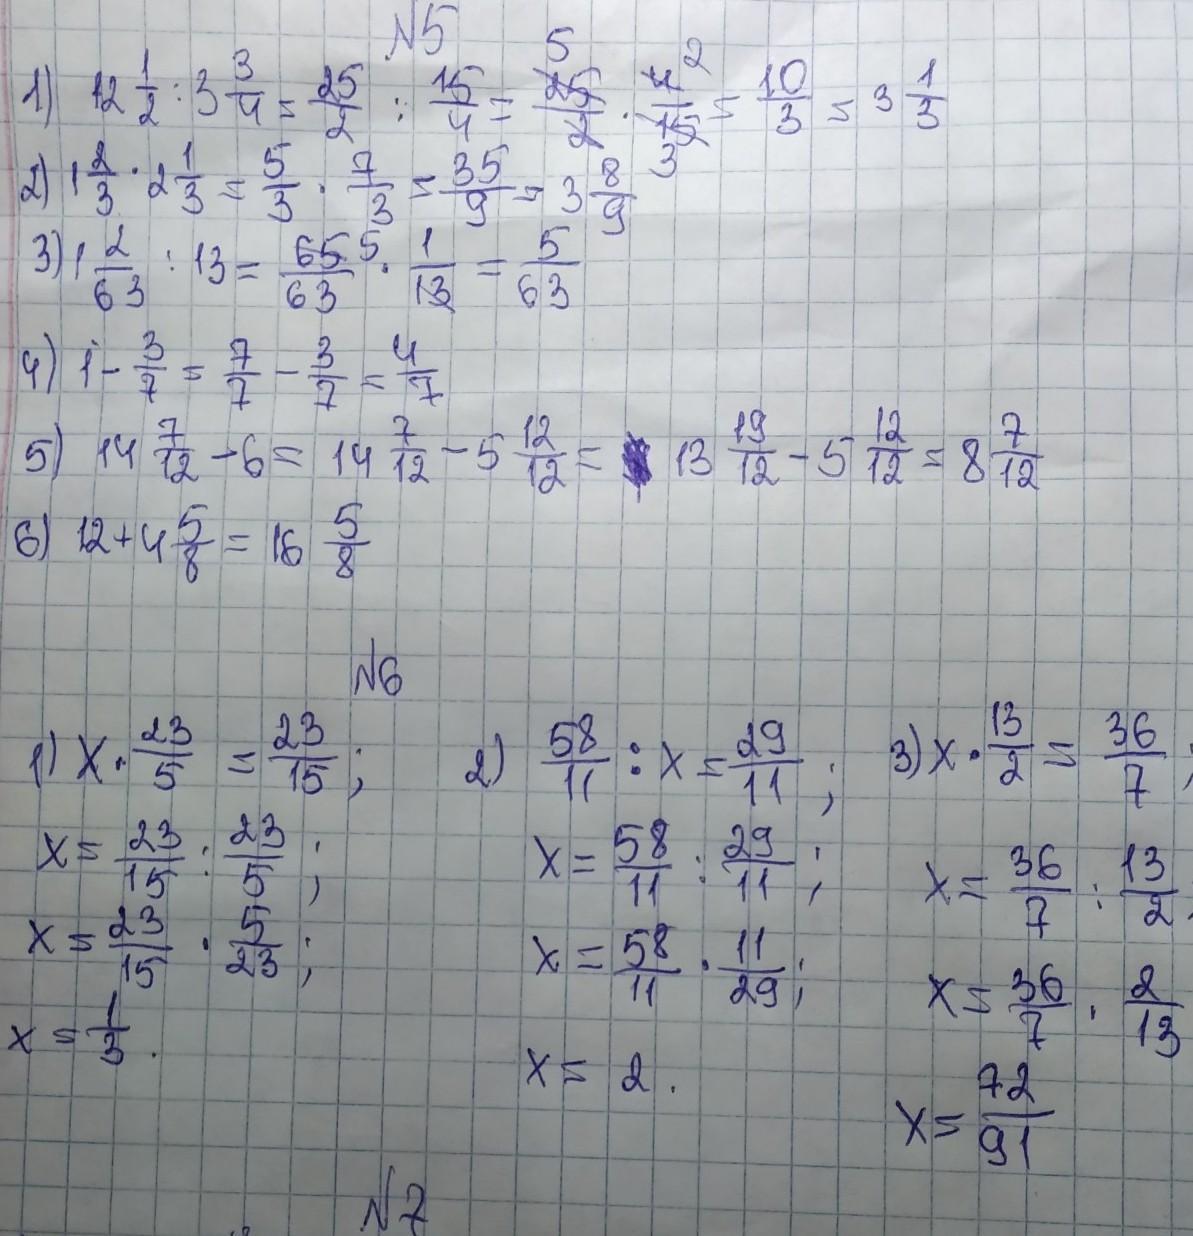 №5
1) 12 1/2 : 3 3/4 = 25/2 : 15/4 = 25/2 5 · 4/15 2 3 = 10/3 = 3 1/3
2) 1 2/3 · 2 1/3 = 5/3 · 7/3 = 35/9 = 3 8/9
3) 1 2/63 : 13 = 65/63 5 · 1/13 = 5/63
4) 1 - 3/7 = 7/7 - 3/7 = 4/7
5) 14 7/12 - 6 = 14 7/12 - 5 12/12 = 13 19/12 - 5 12/12 = 8 7/12
6) 12 + 4 5/8 = 16 5/8
№6
1) x · 23/5 = 23/15 ;
x = 23/15 : 23/5 ;
x = 23/15 · 5/23 ;
x = 1/3 .
2) 58/11 : x = 29/11 ;
x = 58/11 : 29/11 ;
x = 58/11 · 11/29 ;
x = 2 .
3) x · 13/2 = 36/7 ;
x = 36/7 : 13/2
x = 36/7 · 2/13
x = 72/91
№7